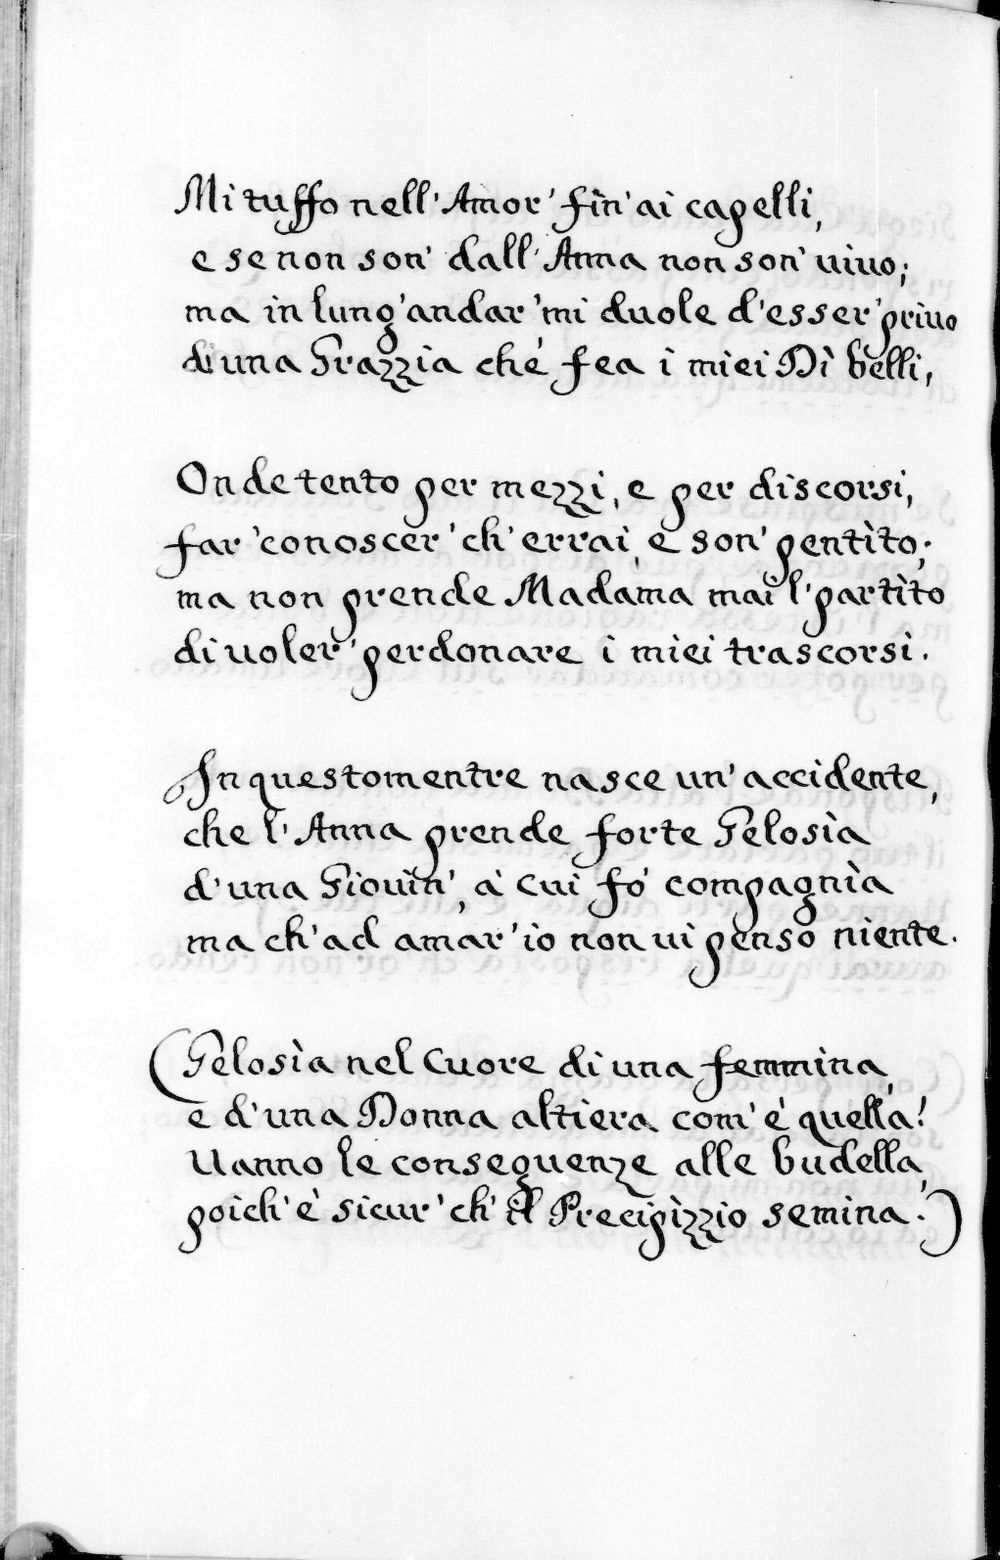 Mi tuffo nell' Amor' fin' ai capelli,
e se non son' dall' Anna non son' uiuo;
ma in lung' andar' mi duole d'esser' priuo
di una Grazzia ché fea i miei Dì belli,
Onde tento per mezzi, e per discorsi,
far' conoscer' ch' errai, e son' pentìto;
ma non prende Madama mai l' partìto
di uoler' perdonare i miei trascorsi.
In questo mentre nasce un' accidente,
che l' Anna prende forte Gelosìa
d'una Giouin', à cui fò compagnìa
ma ch' ad amar' io non ui penso niente.
(Gelosìa nel Cuore di una femmina,
e d'una Donna altiera com' è quella!
Uanno le conseguenze alle budella,
poich' è sicur' ch' il Precipìzzio semina.)